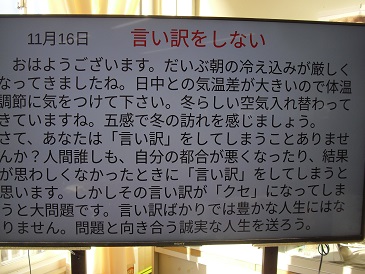 11月16日 言い訳をしない
おはようございます。だいぶ朝の冷え込みが厳しく
なってきましたね。日中との気温差が大きいので体温
調節に気をつけて下さい。冬らしい空気入れ替わって
きていますね。五感で冬の訪れを感じましょう。
さて、あなたは「言い訳」をしてしまうことありませ
んか？人間誰しも、自分の都合が悪くなったり、結果
が思わしくなかったときに「言い訳」をしてしまうと
思います。しかしその言い訳が「クセ」になってしま
うと大問題です。言い訳ばかりでは豊かな人生にはな
りません。問題と向き合う誠実な人生を送ろう。